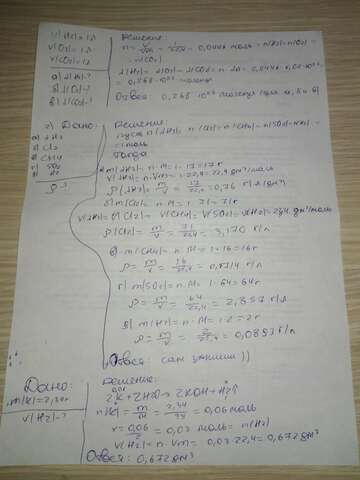 V(H2)=1л
V(O2)=1л
V(CO2)=1л
а) N(H2)-?
б) N(O2)-?
в) N(CO2)-?
Решение
n = V/Vm = 1/22,4 = 0,0446 моль = n(H2)=n(O2)=
=n(CO2)
N(H2)=N(O2)=N(CO2)=n·Na=0,0446·6,02·10²³=
= 0,268·10²³
Ответ: 0,268·10²³ молекул
2) Дано:
а) NH3
б) Cl2
в) CH4
г) SO2
д) H2
ρ-?
Решение
Пусть n(NH3)=n(Cl2)=n(CH4)=n(SO2)=n(H2)=
=1 моль
Тогда
m(NH3)=n·M=1·17=17г
V(NH3)=n·Vm=1·22,4=22,4 дм³
ρ(NH3)=m/V=17/22,4=0,76 г/л (дм³)
б) m(Cl2)=n·M=1·71=71г
V(NH3)=V(Cl2)=V(CH4)=V(SO2)=V(H2)=22,4 дм³/моль
ρ(Cl2)=m/V=71/22,4=3,170 г/л
в) m(CH4)=n·M=1·16=16г
ρ=m/V=16/22,4=0,714 г/л
г) m(SO2)=n·M=1·64=64г
ρ=m/V=64/22,4=2,857 г/л
д) m(H2)=n·M=1·2=2г
ρ=m/V=2/22,4=0,0893 г/л
Ответ: сам запиши))
Дано:
m(K)=2,34г
V(H2)-?
Решение:
2K+2H2O→2KOH+H2↑
n(K)=m/M=2,34/39=0,06 моль
x=0,06/2=0,03моль=n(H2)
V(H2)=n·Vm=0,03·22,4=0,672дм³
Ответ: 0,672дм³